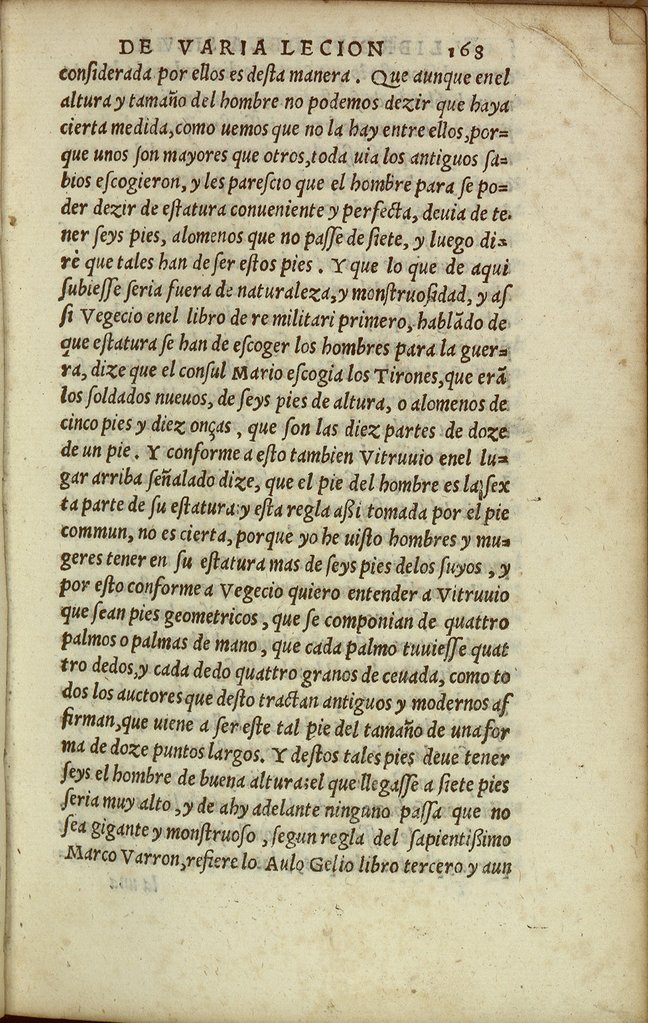 DE VARIA LECION 168
considerada por ellos es desta manera. Que aunque enel
altura y tamaño del hombre no podemos dezir que haya
cierta medida, como uemos que no la hay entre ellos, por=
que unos son mayores que otros, toda uia los antiguos sa=
bios escogieron, y les parescio que el hombre para se po=
der dezir de estatura conueniente y perfecta, deuia de te=
ner seys pies, alomenos que no passe de siete, y luego di=
rè que tales han de ser estos pies. Y que lo que de aqui
subiesse seria fuera de naturaleza, y monstruosidad, y as
si Vegecio enel libro de re militari primero, hablãdo de
q̃ue estatura se han de escoger los hombres para la guer=
ra, dize que el consul Mario escogia los Tirones, que erã
los soldados nueuos, de seys pies de altura, o alomenos de
cinco pies y diez onças, que son las diez partes de doze
de un pie. Y conforme a esto tambien Vitruuio enel lu=
gar arriba señalado dize, que el pie del hombre es la sex
ta parte de su estatura: y esta regla aßi tomada por el pie
commun, no es cierta, porque yo he uisto hombres y mu=
geres tener en su estatura mas de seys pies delos suyos, y
por esto conforme a Vegecio quiero entender a Vitruuio
que sean pies geometricos, que se componian de quattro
palmos o palmas de mano, que cada palmo tuuiesse quat
tro dedos, y cada dedo quattro granos de ceuada, como to
dos los auctores que desto tractan antiguos y modernos af
firman, que uiene a ser este tal pie del tamaño de una for
ma de doze puntos largos. Y destos tales pies deue tener
seys el hombre de buena altura: el que llegasse a siete pies
seria muy alto, y de ahy adelante ninguno passa que no
sea gigante y monstruoso, segun regla del sapientißimo
Marco Varron, refiere lo Aulo Gelio libro tercero y aun